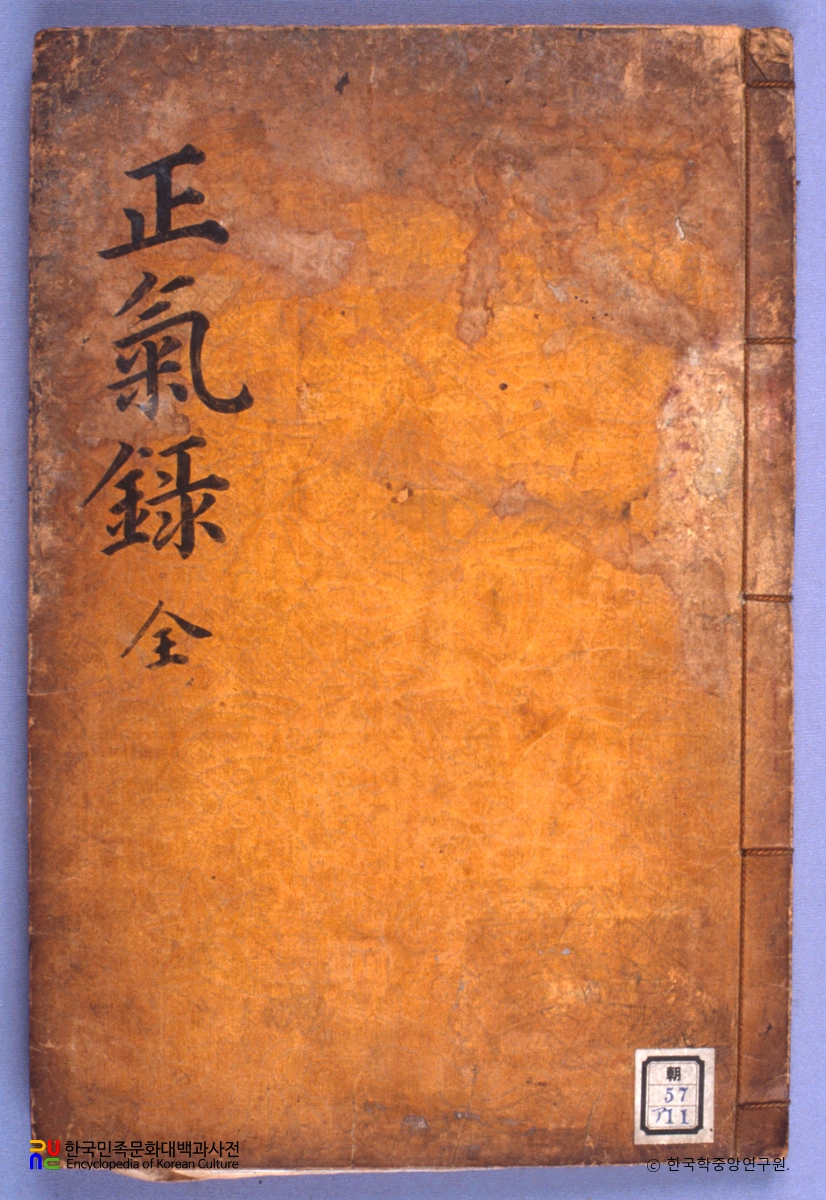 正氣錄 全
朝
57
ア11
한국민족문화대백과사전
Encyclopedia of Korean Culture
© 한국학중앙연구원.